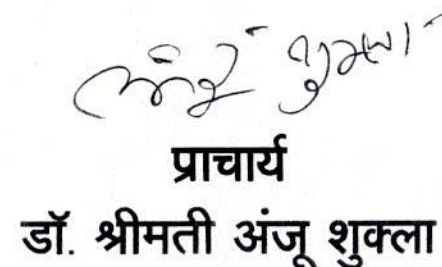 अंजू शुक्ला
प्राचार्य
डॉ. श्रीमती अंजू शुक्ला